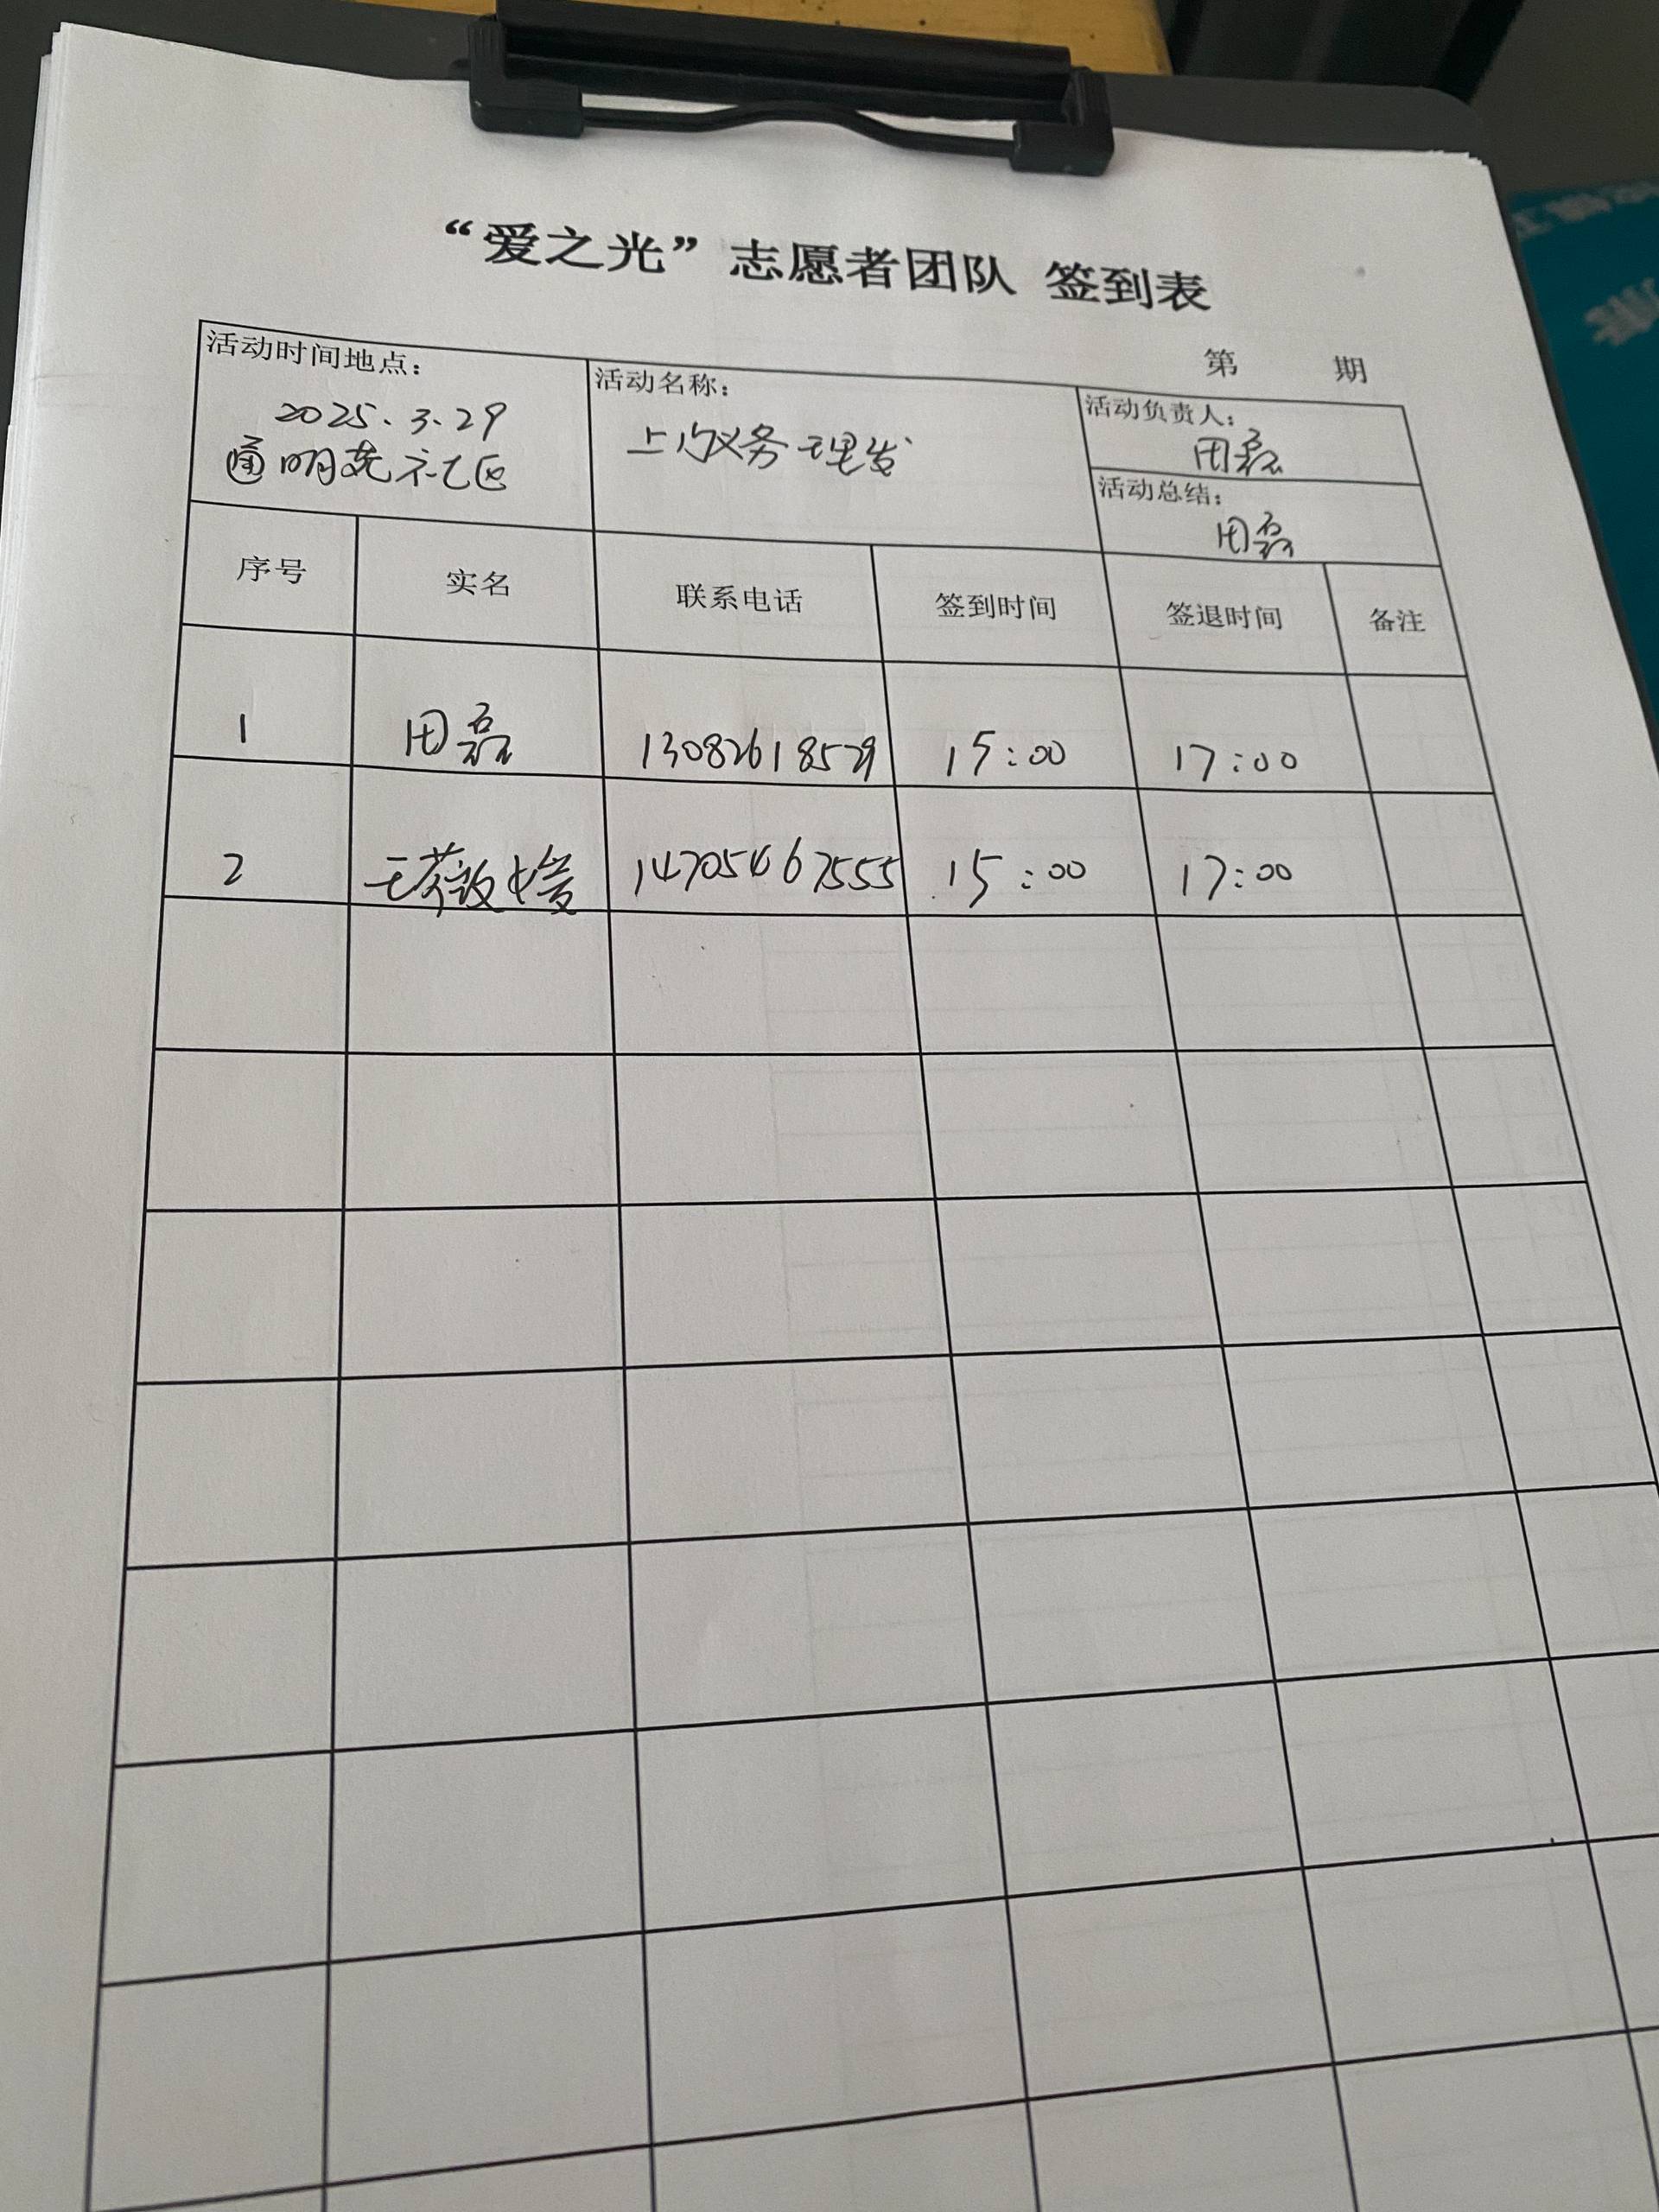 “爱之光”志愿者团队 签到表
第 期
活动时间地点：
2025.3.29
通明苑社区
活动名称：
上门义务理发
活动负责人：
田磊
活动总结：
田磊
序号 实名 联系电话 签到时间 签退时间 备注
1 田磊 13082618529 15:00 17:00
2 14705467555 15:00 17:00